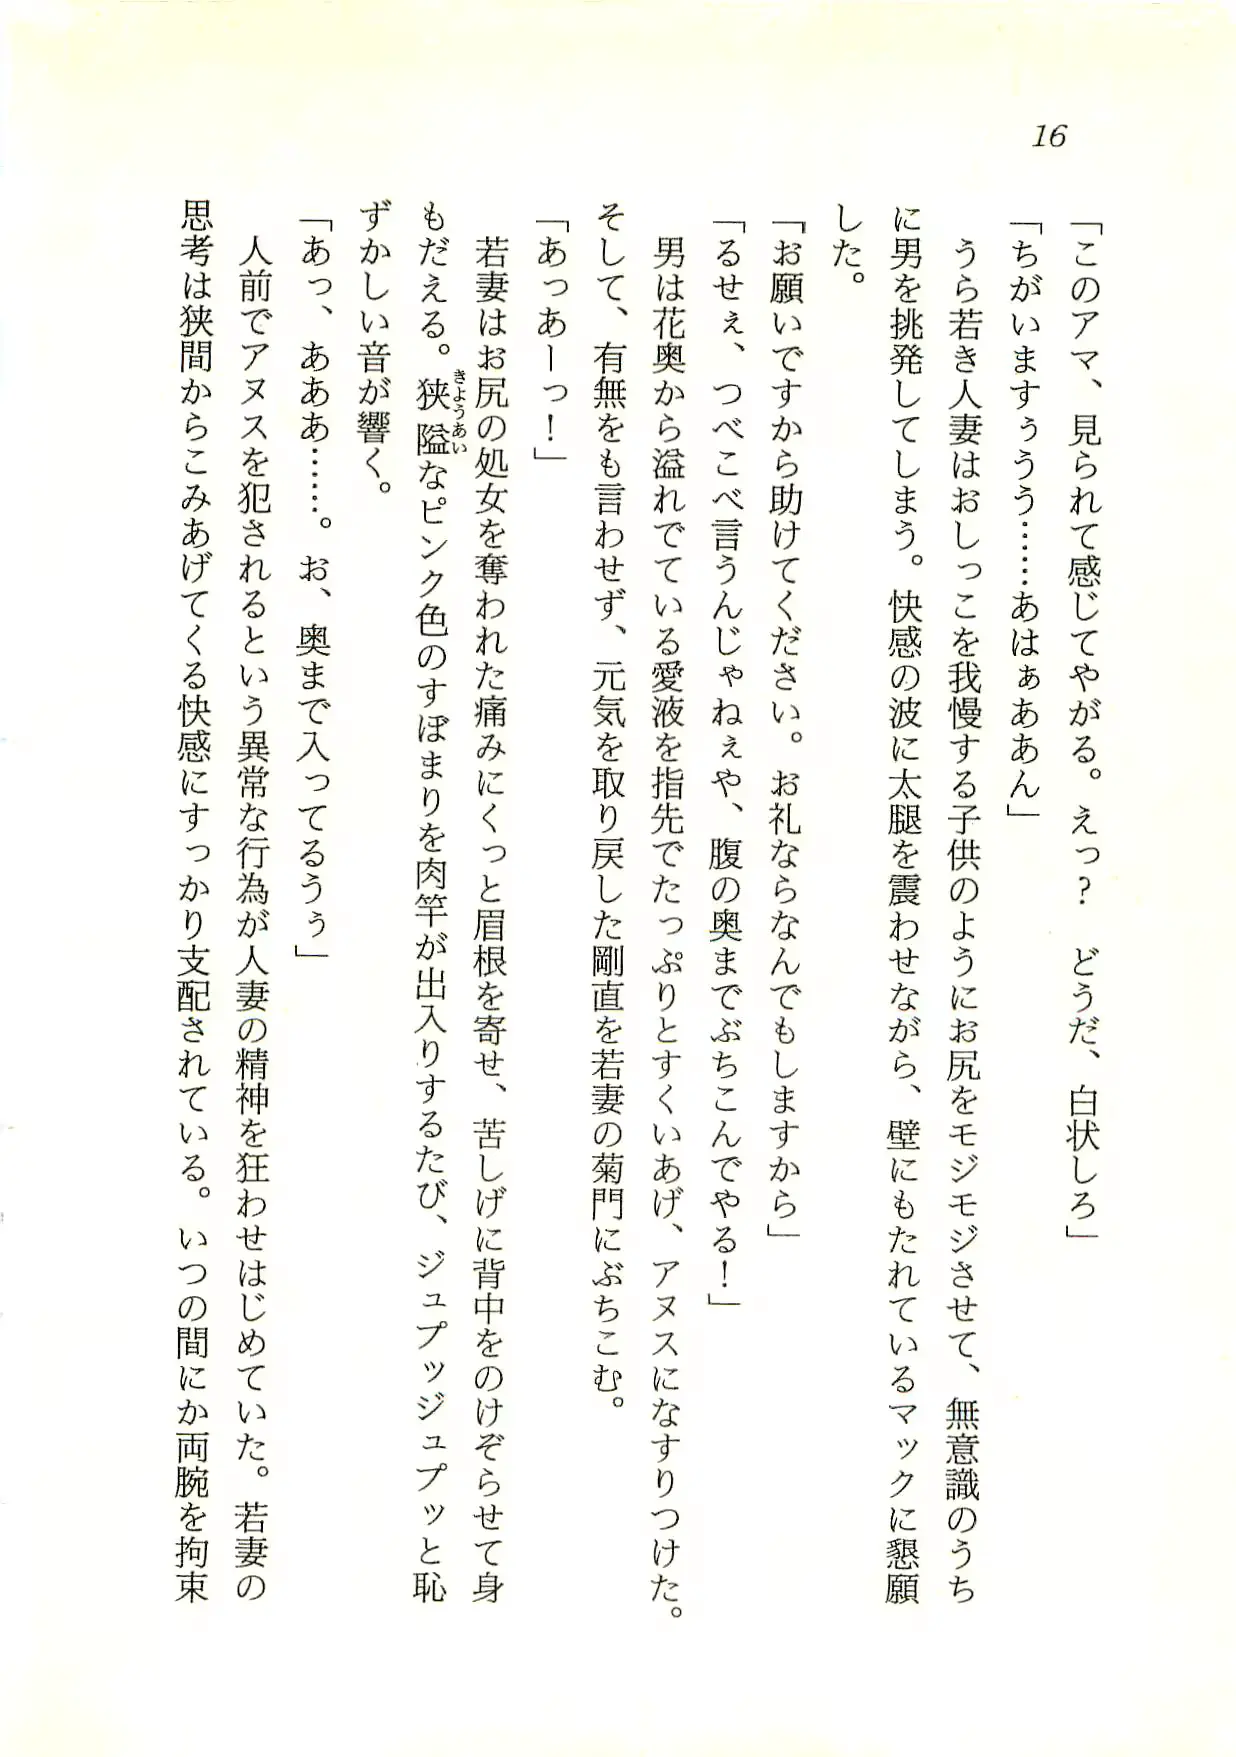 16
「このアマ、見られて感じてやがる。えっ？　どうだ、白状しろ」
「ちがいますぅうう……あはぁああん」
　うら若き人妻はおしっこを我慢する子供のようにお尻をモジモジさせて、無意識のうち
に男を挑発してしまう。快感の波に太腿を震わせながら、壁にもたれているマックに懇願
した。
「お願いですから助けてください。お礼ならなんでもしますから」
「るせぇ、つべこべ言うんじゃねぇや、腹の奥までぶちこんでやる！」
　男は花奥から溢れでている愛液を指先でたっぷりとすくいあげ、アヌスになすりつけた。
そして、有無をも言わせず、元気を取り戻した剛直を若妻の菊門にぶちこむ。
「あっあーっ！」
　若妻はお尻の処女を奪われた痛みにくっと眉根を寄せ、苦しげに背中をのけぞらせて身
もだえる。狭隘なピンク色のすぼまりを肉竿が出入りするたび、ジュプッジュプッと恥
きょうあい
ずかしい音が響く。
「あっ、あああ……。お、奥まで入ってるうぅ」
　人前でアヌスを犯されるという異常な行為が人妻の精神を狂わせはじめていた。若妻の
思考は狭間からこみあげてくる快感にすっかり支配されている。いつの間にか両腕を拘束